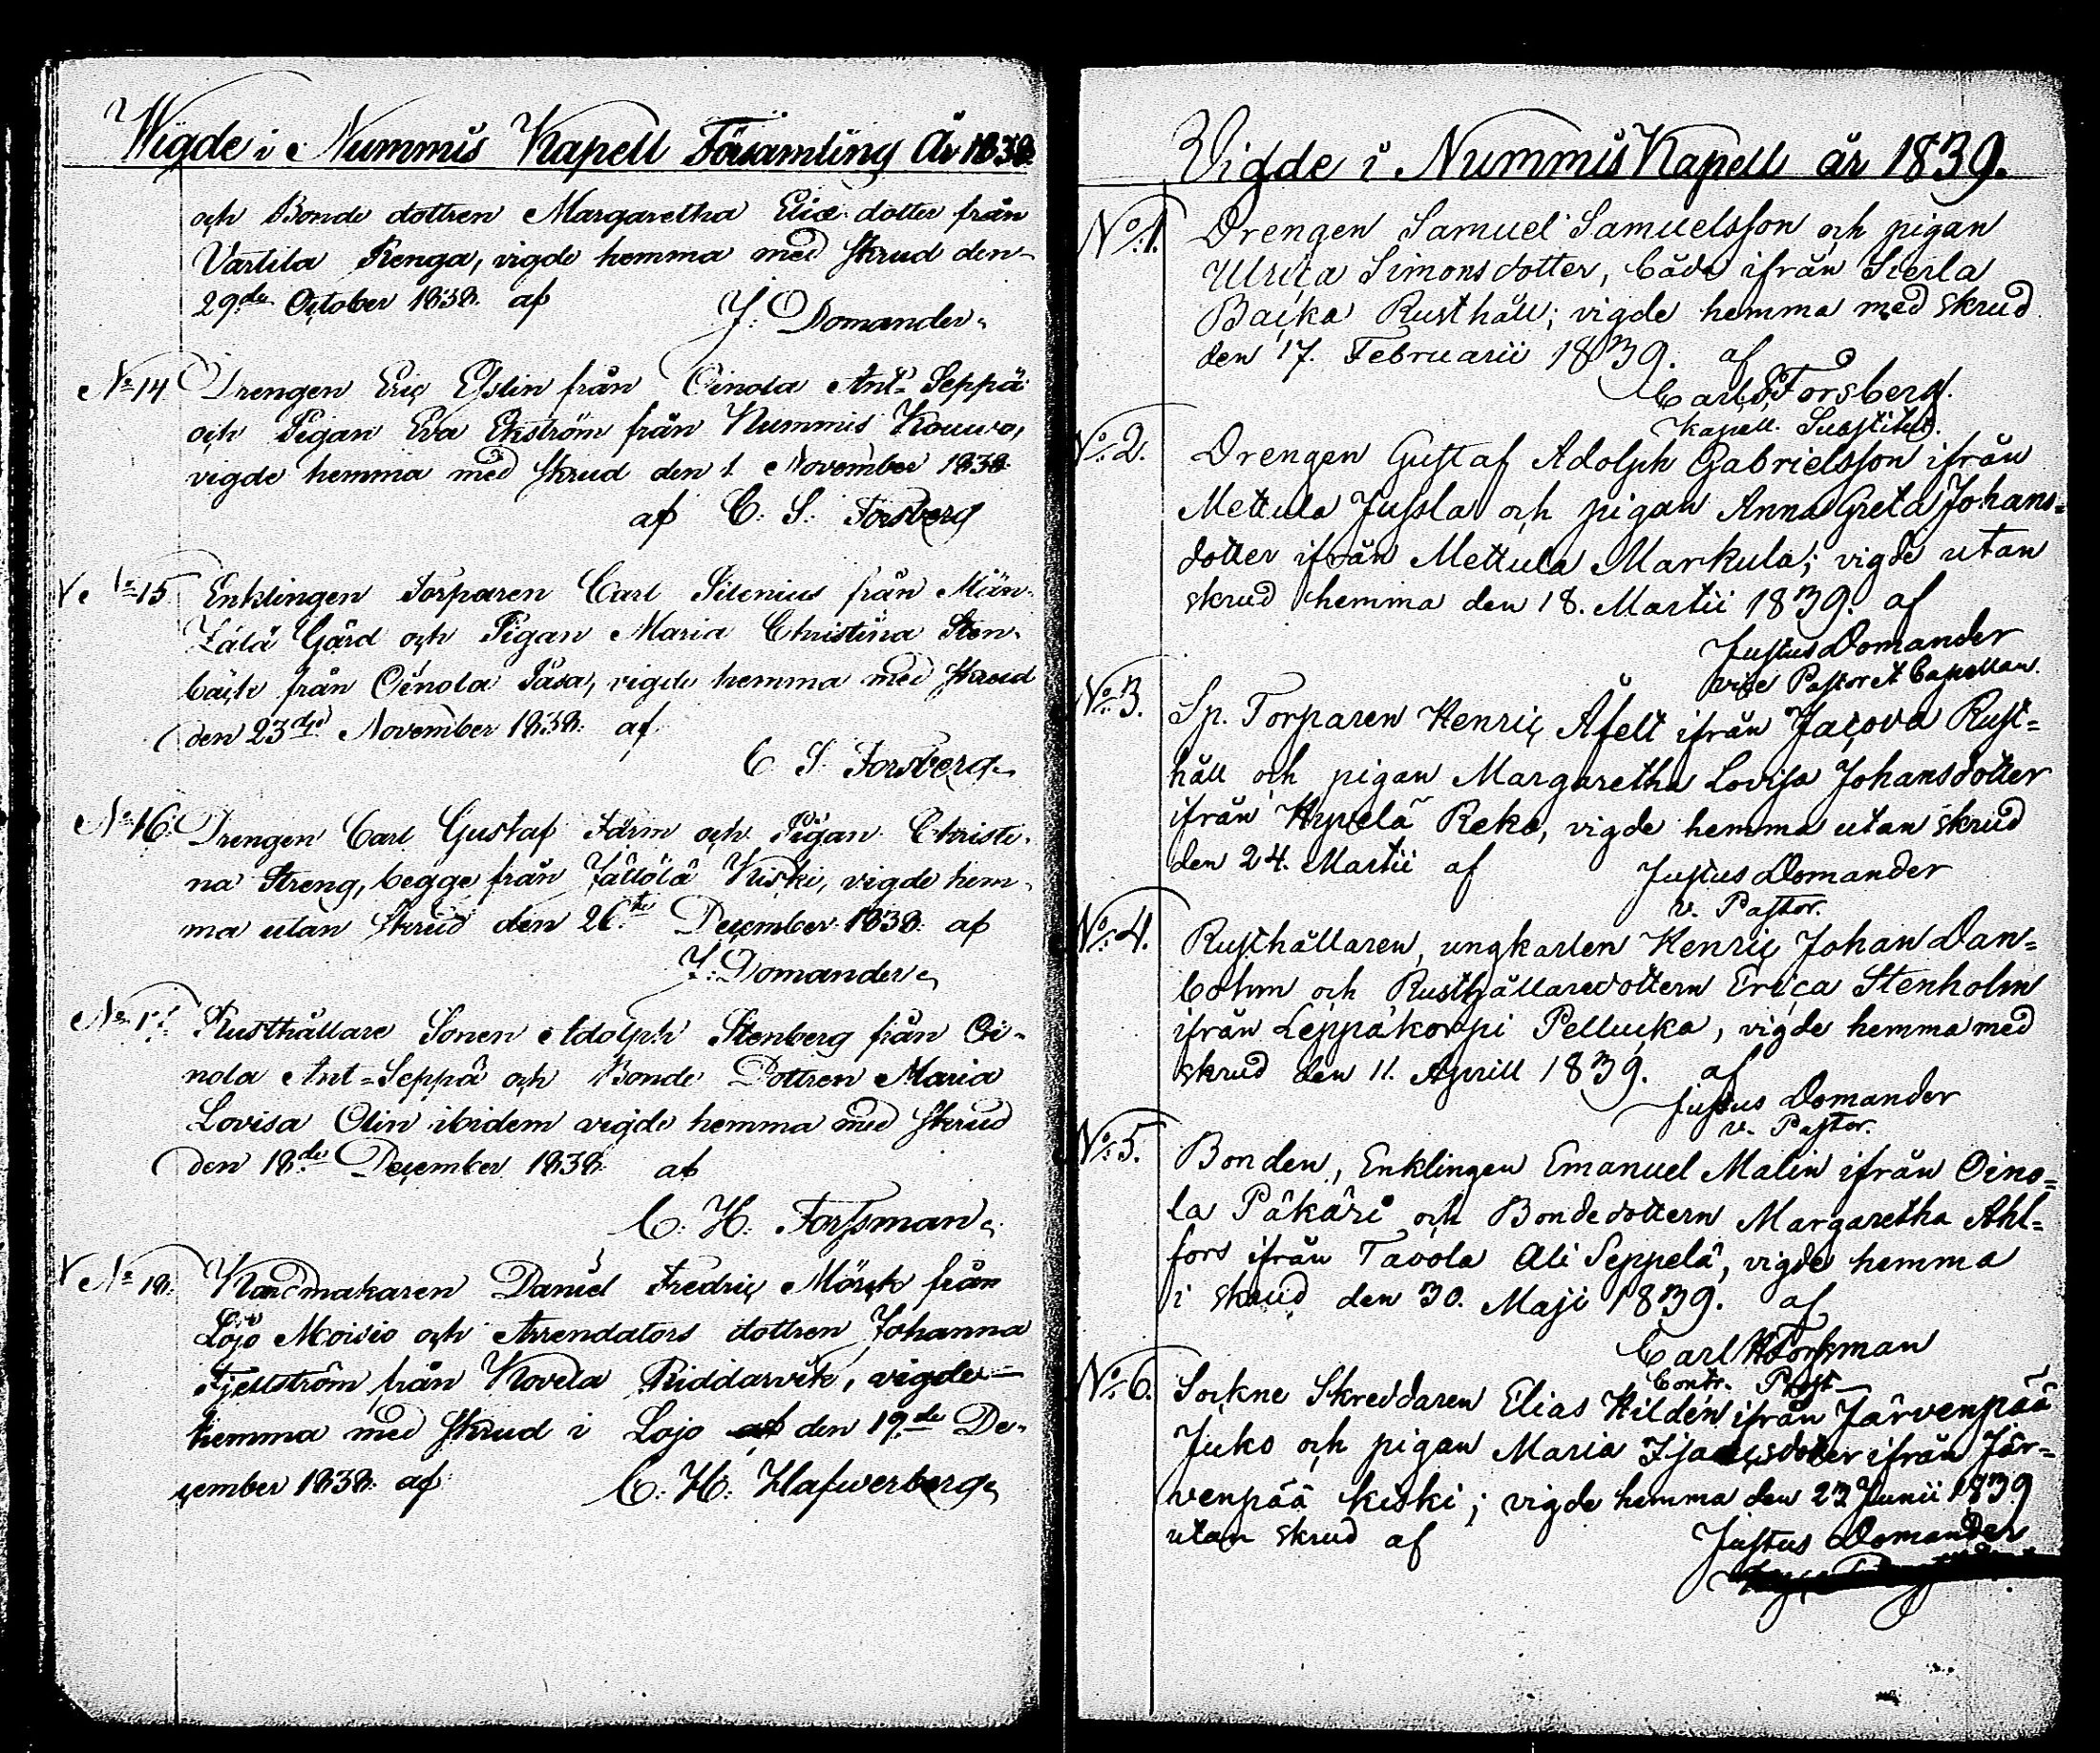 Wigde i Nummis Kapell Församling År 1838.
och Bonde dottren Margaretha Eliæ dotter från
Vartila Renga, vigde hemma med skrud den
29de October 1838. af
J. Domander
No 14 Drengen Eric Elslin från Oinola Ant-Seppä
och Pigan Eva Ekström från Nummis Kouvo,
vigde hemma med skrud den 1. November 1838.
af C. S. Forsberg
No 15 Enklingen Torparen Carl Silenius från Män-
Gård och Pigan Maria Christina Sten-
bäck från Oinola Pasa, vigde hemma med skrud
den 23de November 1838. af
C S. Forsberg
No 16. Drengen Carl Gustaf Färm och Pigan Christi-
na Streng, begge från Jättölä Kiski, vigde hem-
ma utan skrud den 26te December 1838. af
J. Domander
No 17. Rusthållare Sonen Adolph Stenberg från Oi-
nola Ant-Seppä och Bonde Dottren Maria
Lovisa Olin ibidem vigde hemma med skrud
den 18de December 1838. af
C. H. Forssman
No 18. Kardmakaren Daniel Fredric Mörck från
Lojo Moisio och Arrendators dottren Johanna
Fjellström från Kovela Riddarvik, vigde
hemma med skrud i Lojo af den 19de De-
cember 1838. af
C. H. Hafwerberg
Vigde i Nummis Kapell år 1839.
No. 1. Drengen Samuel Samuelsson och pigan
Ulrica Simonsdotter, både ifrån Sierla
Backa Rusthåll; vigde hemma med skrud
den 17. Februarii 1839. af
Carl S Forsberg.
Kapell. Substitut.
No. 2. Drengen Gustaf Adolph Gabrielsson ifrån
Mettula Jussla och pigan Anna Greta Johans-
dotter ifrån Mettula Markula; vigde utan
skrud hemma den 18. Martii 1839. af
Justus Domander
vice Pastor et Capellan.
No. 3. Sp. Torparen Henric Åfelt ifrån Jacova Rust-
håll och pigan Margaretha Lovisa Johansdotter
ifrån Hyvelä Reko, vigde hemma utan skrud
den 24. Martii af
Justus Domander
v. Pastor.
No. 4. Rusthållaren, ungkarlen Henric Johan Dan-
bohm och Rusthållaredottern Erica Stenholm
ifrån Leppäkorpi Pellucka, vigde hemma med
skrud den 11. Aprill 1839. af
Justus Domander
v. Pastor.
No. 5. Bonden, Enklingen Emanuel Malin ifrån Oino-
la Päkäri och Bondedottern Margaretha Ahl-
fors ifrån Tavola Ali Seppelä, vigde hemma
i skrud den 30. Maji 1839. af
Carl H Forssman
Contr. Prost
No. 6. Sockne Skreddaren Elias Hildén ifrån Järvenpää
Juko och pigan Maria Isjacsdotter ifrån Jär-
venpää kiski; vigde hemma den 23 Junii 1839
utan skrud af
Justus Domander